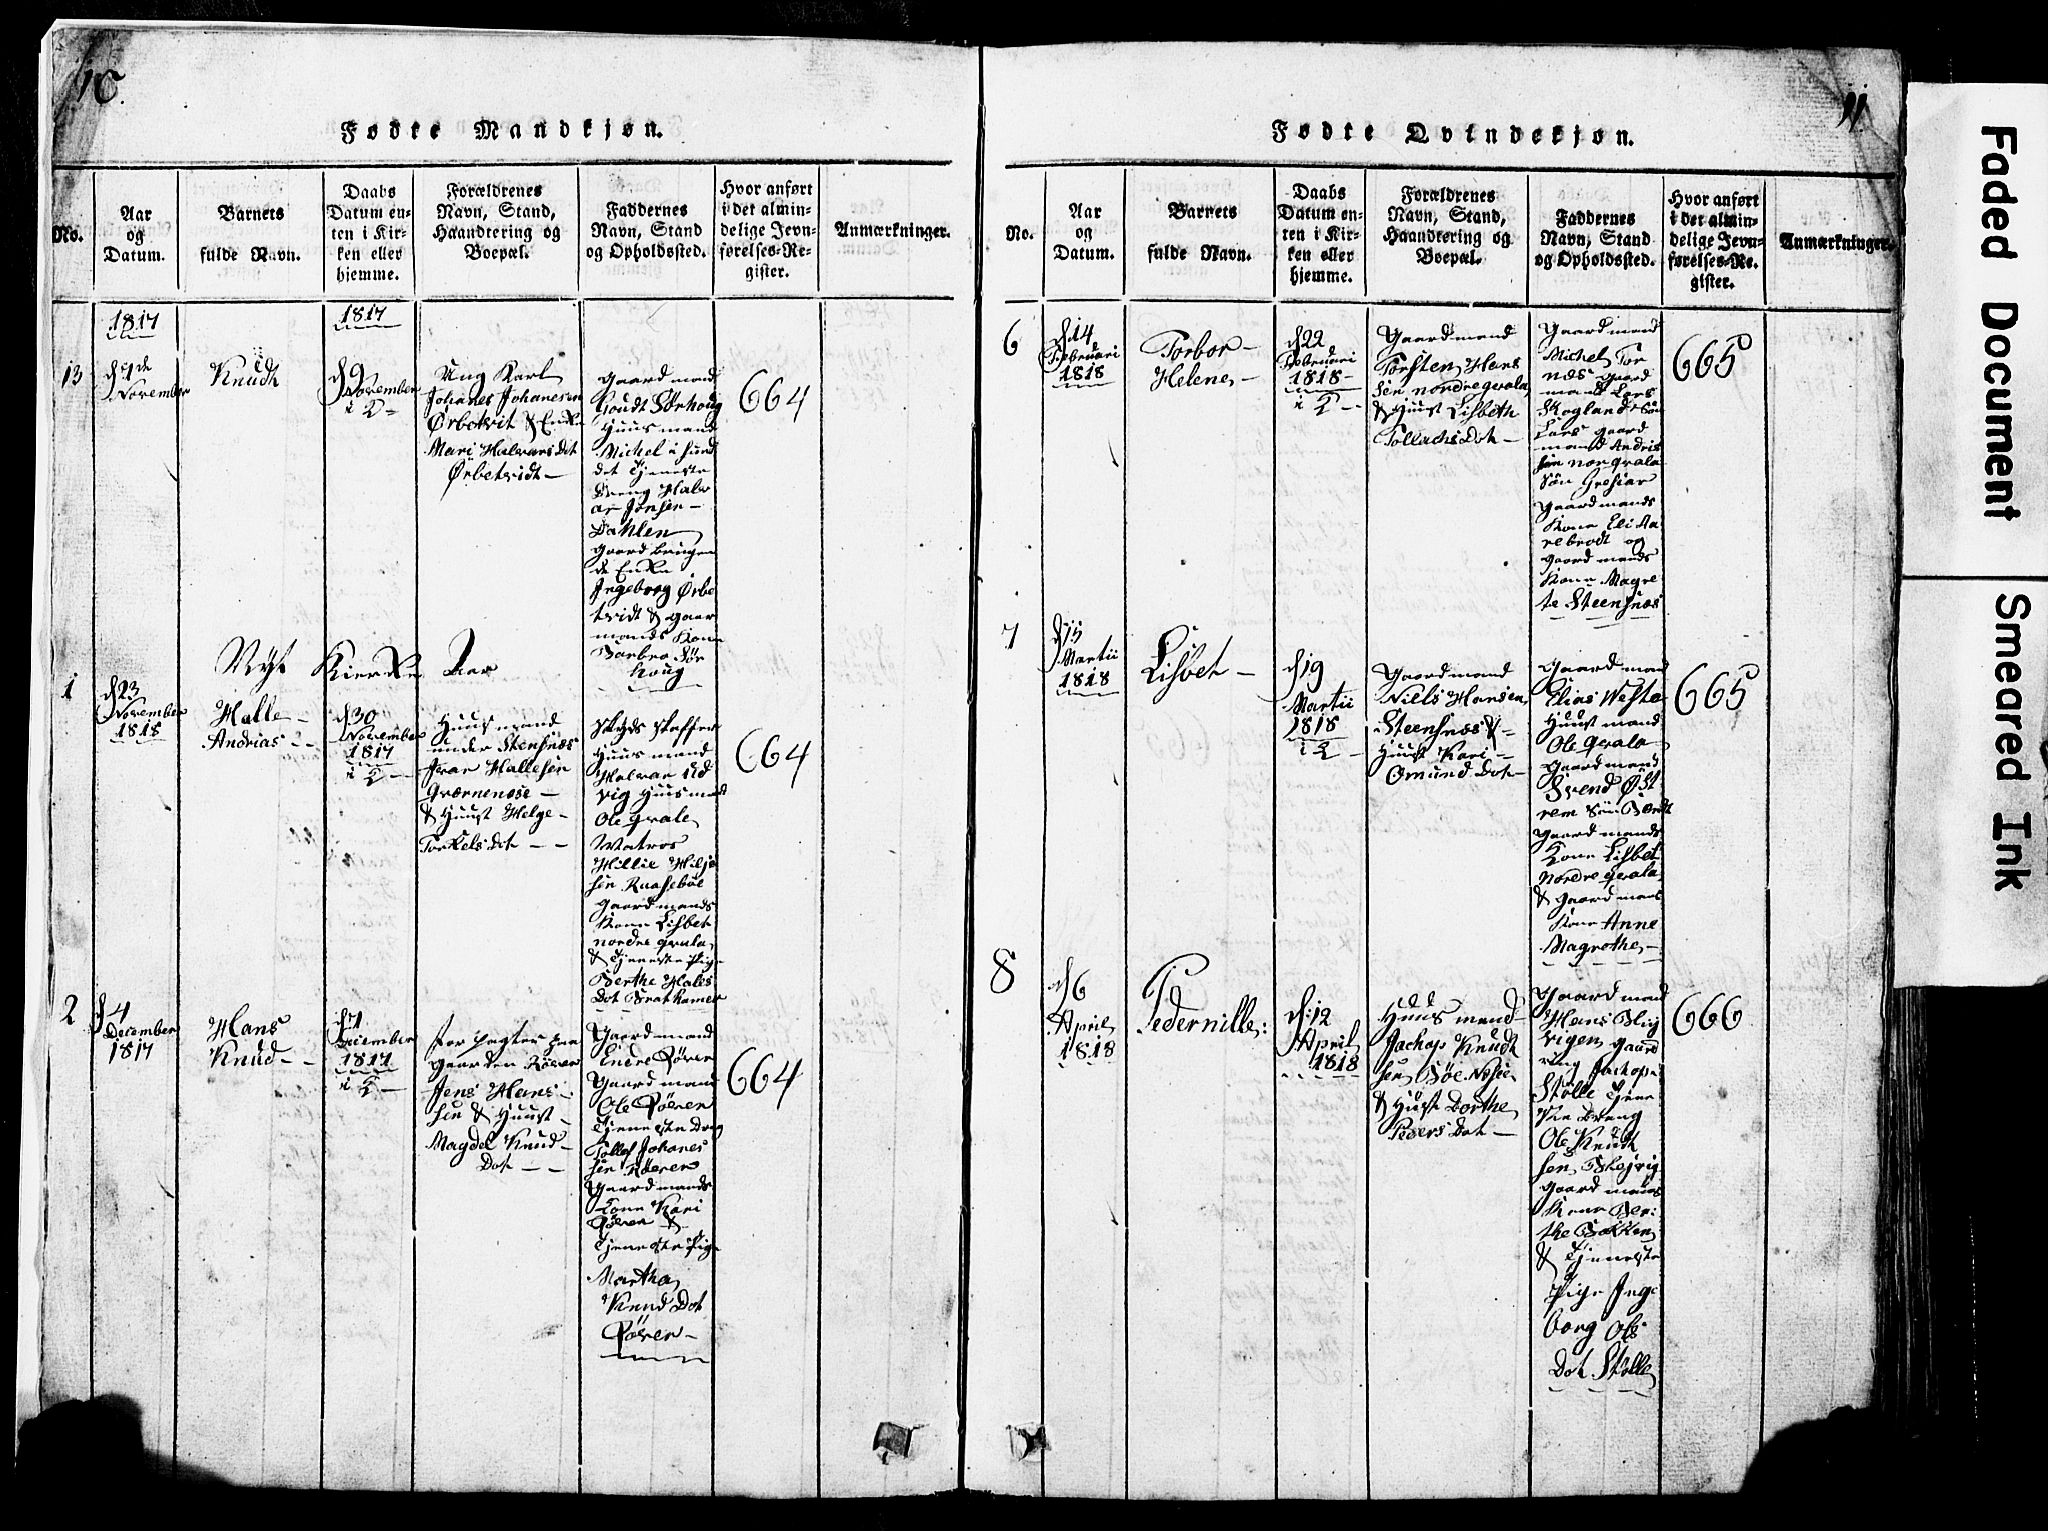 10.
Fødte Mandkjøn.
No.
Aar
og
Datum.
Barnets
fulde Navn.
Daabs
Datum en-
ten i Kir-
ken eller
hjemme.
Forældrenes
Navn, Stand,
Haandtering og
Boepæl.
Faddernes
Navn, Stand
og Opholdssted.
Hvor anført
i det almin-
delige Jevn-
førelses-Re-
gister.
Anmærkninger.
1817
1817
13
November
Knudt
d 9
November
Ung Karl
Johanes Johanesen
Ørbekvit & Enke
Mari Halvars Dot
Ørbekvidt
Gaard mand
Goudt Sørhoug
Huus mand
Michel i Sund
det Tjeneste
Dreng Halv
ar Jonsen
Dahlen
Gaard brugen
de Enke
Ingeborg Ørbe
kvidt & gaar
mands Kone
Barbra Sør
houg
664
Nyt Kierke Aar
1
d 23
November
1818
Halle
Andrias
d 30
November
1817
Huus mand
under Stensnæs
Ivar Hallesen
& Huust Helge
Torkels Dot
Skyds skaffer
Huus mand
Halvar
vig Huusmand
Ole Grale
Matros
gaard mands
Kone Lisbet
nordre grala
& Tjeneste Pige
Berthe Hales
Dot Bratkamer
664
2
d 4
December
1817
Hans
Knud
d 7
December
1817
gaarden Røever
Jens Hans
sen & Huust
Magdel Knud
Dot
Gaard mand
Endre Røver
Gaard mand
Ole Røever
Tjeneste Drng
Tollef Johanes
sen Røever
Gaard mands
Kone Kari
Røever &
Tjeneste Pige
Martha
Knud Dot
Røever
664
11.
Fødte Qvindekjøn.
No.
Aar
og
Datum.
Barnets
fulde Navn.
Daabs
Datum en-
ten i Kir-
ken eller
hjemme.
Forældrenes
Navn, Stand,
Haandtering og
Boepæl.
Faddernes
Navn, Stand
og Opholdssted.
Hvor anført
i det almin-
delige Jevn-
førelses-Re-
gister.
Anmærkninger.
6
d 14
Februari
1818
Torbor
Helene
d 22
Februari
1818
Gaard mand
Torsten Hans
sen nordre grala
& Huust Lisbeth
Tollachs Dot
Gaard mand
Michel Tor
næs gaard
mand Lars
Skogland & Søn
Lars gaard
mand Andris
sen nor grala
Søn Gresiar
gaard mands
Kone Eli Aa
rebrodt og
gaard mands
Kone Magre
te Steensnæs
665
7
d 15
Martii
1818
Lisbet
d 19
Martii
1818
Gaard mand
Niels Hansen
Steensnæs &
Huust Kari
Omund Dot
Gaard mand
Elias Westa
Huus mand
Ole Grala
Gaard mand
Svend Øst
rem Søn Berdt
Gaard mands
Kone Lisbet
Nordre grala
& gaard mans
Kone Anne
Magrethe
665
8
d 6
April
1818
Pedernille:
d: 12
April
1818
Huus mand
Jachop Knudt
sen Bøe
& Huust Dorthe
Peders Dot
Gaard mand
Hans Blig
vigen gaard
ung Jachop
Stolle Tjene
ste Dreng
Ole Knudt
sen Blejvig
gaard mans
Kone Ber:
the Bakken
& Tjeneste
Pige Inge
borg Ols
Dot Stolle
666
Faded Document
Smeared Ink